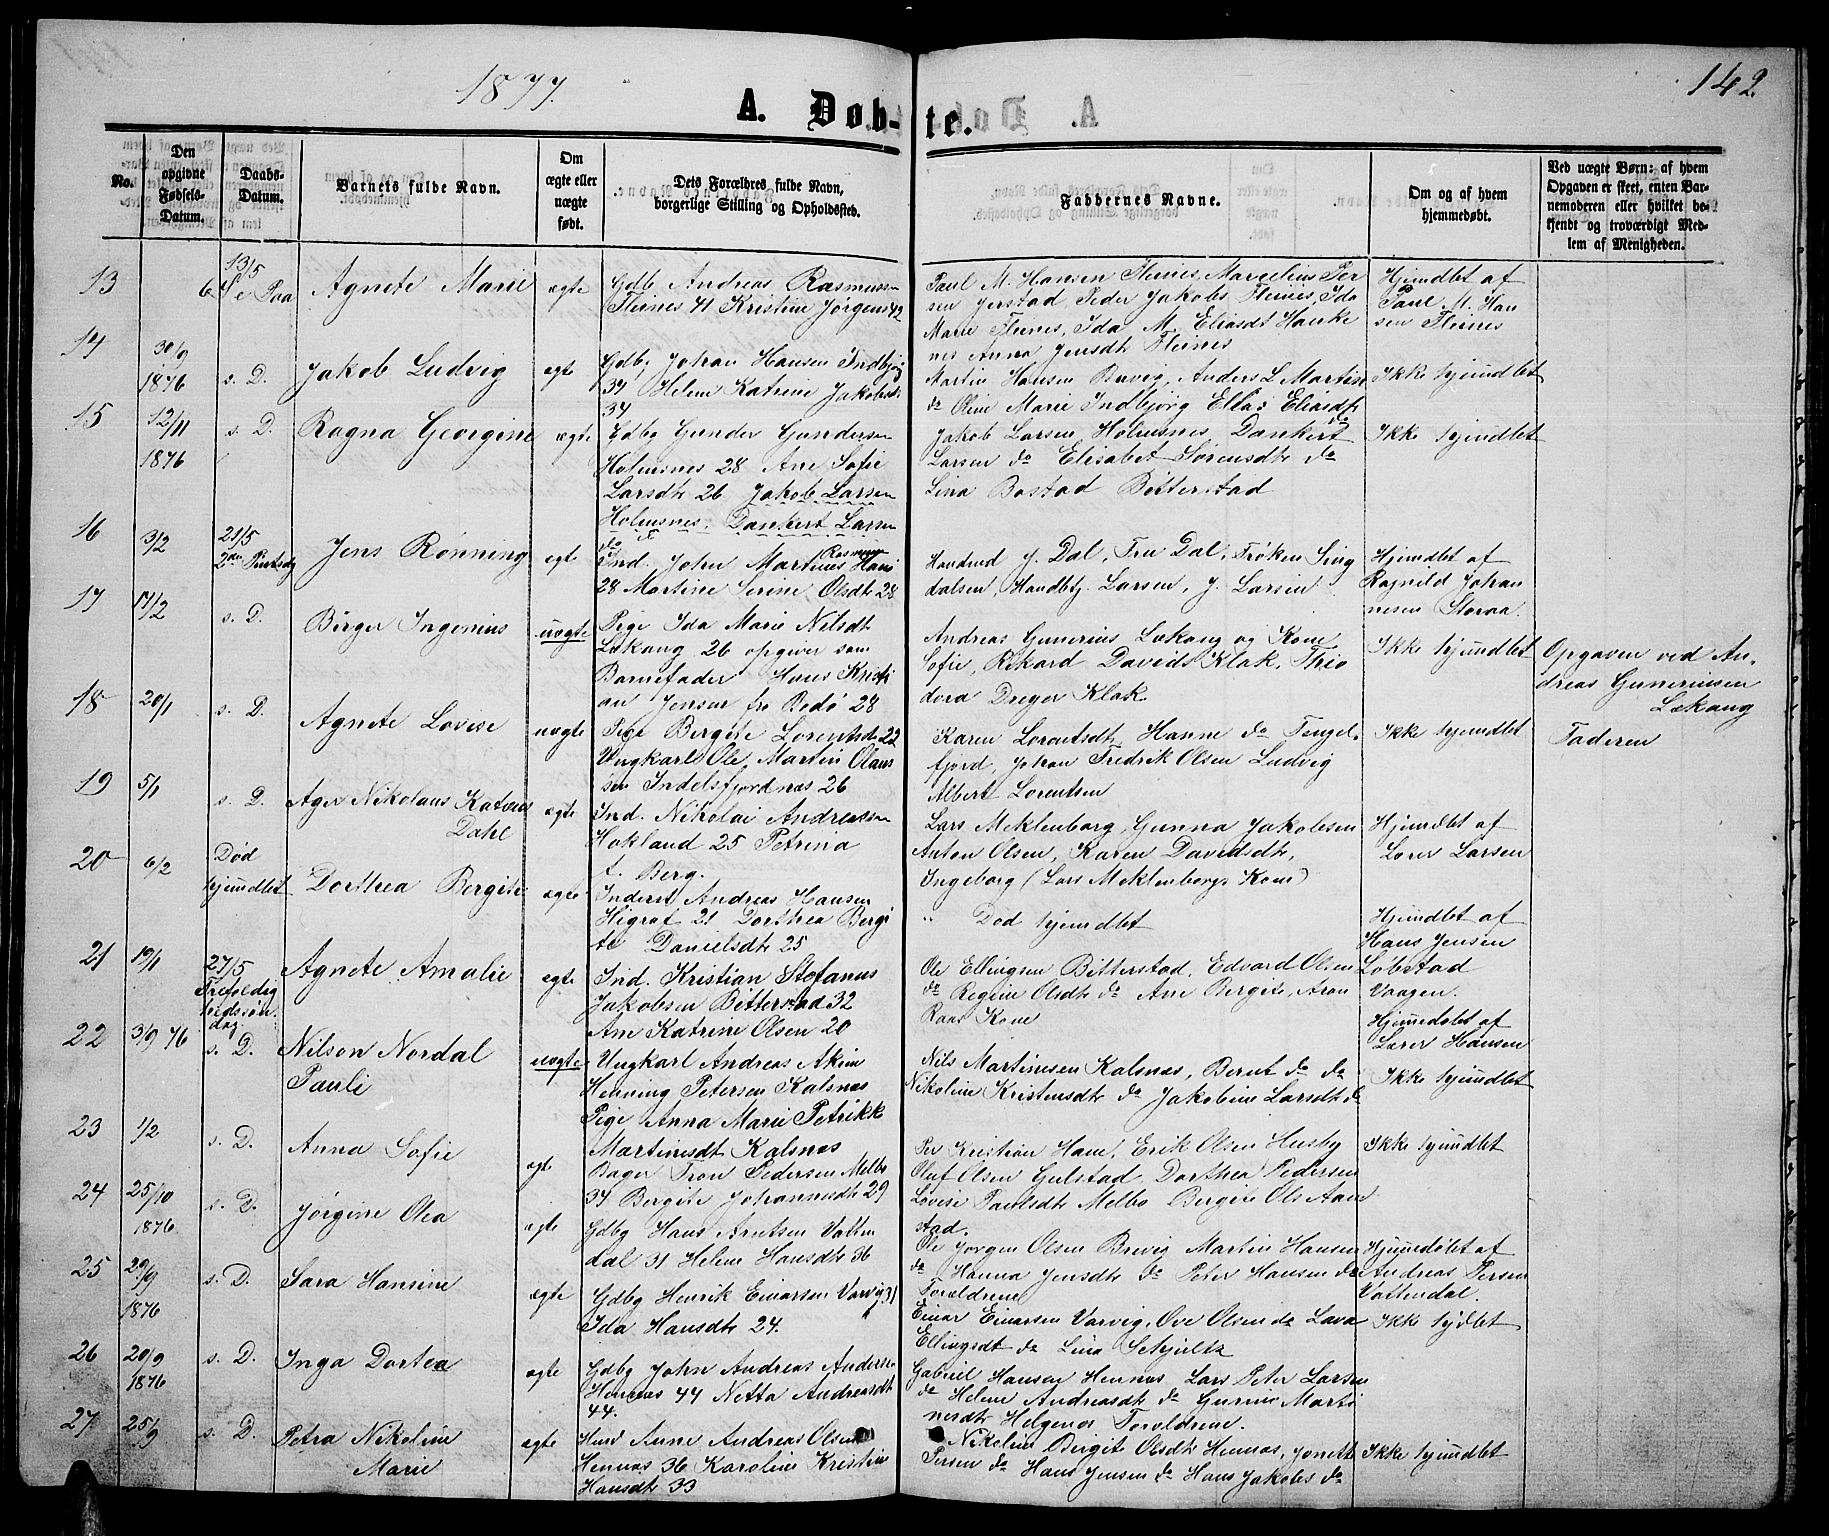 1877.
142.
A. Døb-te.
No.
Den opgivne Fødsels-Datum.
Daabs-Datum.
Barnets fulde Navn.
Om ægte eller uægte født.
Dets Forældres fulde Navn, borgerlige Stilling og Opholdssted.
Faddernes Navne.
Om og af hvem hjemmedøbt.
Ved uægte Børn: af hvem Opgaven er skeet, enten Barnemoderen eller hvilket bekjendt og troværdigt Medlem af Menigheden.
13
13/5
6te e Paa
Agnete Marie
ægte
Gdb Andreas Rasmussen
Fleines 41 Kristine Jørgens 42
Paul M. Hansen Fleines, Marcelius Per
sen Jerstad, Peder Jakobs Fleines, Ida
Marie Fleines, Ida M. Eliasdt Hauke
nes Anna Jensdtr Fleines
Hjemdbt af
Paul M. Han
sen Fleines
14
30/9
1876
s. D.
Jakob Ludvig
ægte
Gdbg Johan Hansen Indbjørg
39 Helene Katrine Jakobsdt
34
Martin Hansen Buvig, Anders L Martin
do Oline Marie Indbjørg Ellas Eliasdtr
do
Ikke hjemdbt
15
12/11
1876
s. D.
Ragna Georgine
ægte
Gdbg Gunder Gundersen
Holmsnes 28 Ane Sofie
Larsdtr 26 Jakob Larsen
Holmsnes, Dankert Larsen
do
Jakob Larsen Holmsnes, Dankert
Larsen do Elisabet Sørensdtr do
Lina Bostad Bitterstad
Ikke hjemdbt
16
3/2
21/5
2den Pintsdg
Jens Rønning
ægt
Ind. John Martinus Rasmus Hans
28 Martine Serine Olsdtr 28
Handmd J. Dal, Fru Dal, Frøken Sing
dalsen, Handbtj. Larsen, J. Larsen
Hjemdbt af
Ragnild Johan
nesen Storaa.
17
17/2
s. D.
Birger Ingenius
uægte
Pige Ida Marie Nilsdtr
Lekang 26 opgiver som
Barnefader Hans Kristi
an Jensen fra Bodø 28
Andreas Gunerius Lekang og Kone
Sofie, Rikard Davids Klak, Theo
dora Dreyer Klak
Ikke hjemdbt
Opgaven ved An,
dreas Gunerinsen
Lekang
18
20/1
s. D.
Agnete Lovise
uægte
Pige Bergite Lorentsdtr 22
Ungkarl Ole Martin Olaus
sen Indelsfjordnæs 26
Karen Lorentsdtr, Hanne do Tengel
fjord, Johan Fredrik Olsen Ludvig
Albert Lorentsen
Ikke hjemdbt
Faderen
19
5/1
s. D.
Ager Nikolaus Katenus
Dahl
ægte
Ind. Nikolai Andreassen
Hokland 25 Petrina
f. Berg.
Lars Meklenborg, Gunna Jakobsen
Anton Olsen, Karen Davidsdtr,
Ingeborg (Lars Meklenborgs Kone)
Hjemdbt af
Lærer Larsen
20
6/2
Død
hjemdbt
Dorthea Bergite
ægte
Inderst Andreas Hansen
Higraf 21 Dorthea Bergi
te Danielsdtr 25
" Død hjemdbt
Hjemdbt af
Hans Jensen
Løbstad
Vaagen.
21
10/1
27/5
Trefoldig
hedssøn
dag
Agnete Amalie
ægte
Ind. Kristian Stefanus
Jakobsen Bitterstad 32
Ane Katrine Olsen 20
Ole Ellingsen Bitterstad, Edvard Olsen
do Regine Olsdtr do Ane Bergite, Aron
Raas Kone
Hjemmedøbt af
Lærer Hansen
22
3/9 76
s. D.
Nilson Nordal
Pauli
uægte
Ungkarl Andreas Akim
Henning Petersen Kalsnæs
Pige Anna Marie Petrikke
Martinusdt Kalsnæs
Nils Martinusen Kalsnæs, Bernt do do
Nikoline Kristensdtr do Jakobine Larsdtr do
Ikke hjemdbt
23
1/2
s. D.
Anna Sofie
ægt
Bager Tron Pedersen Melbo
34 Bergite Johannesdtr 29
Per Kristian Hane, Erik Olsen Husby
Oluf Olsen Gulstad, Dorthea Pedersen
Lovise Paulsdtr Melbo Bergite Ols Aan
stad.
Ikke hjemdbt
24
25/10
1876.
s. D.
Jørgine Olea
ægte
Gdbg Hans Arntsen Vatten
dal 31 Helene Hansdtr 36
Ole Jørgen Olsen Brevig Martin Hansen
do Hanna Jensdtr do Peter Hansen do
Forældrene
Hjemmedøbt af
Andreas Persen
Vattendal.
25
29/9
1876
s. D.
Sara Hansine
ægte
Gdbg Henrik Einarsen Varvig 31
Ida Hansdtr 24.
Einar Einarsen Varvig, Ove Olsen do Lava
Ellingsdt do Lina Schjultz
Ikke hjdbt
26
20/9
1876
s. D.
Inga Dortea
ægte
Gdbg John Andreas Andersen
Hennæs 44 Netta Andreasdt
44.
Gabriel Hansen Hennæs, Lars Peter Larsen
do Helene Andreasdtr do Gurine Marti
nusdtr Helgenæs Forældrene.
27
25/9
s. D.
Petra Nikoline
Marie
ægte
Hmd Arne Andreas Olsen
Hennæs 36 Karoline Kristine
Hansdtr 33
Nikoline Birgite Olsdtr Hennæs, Jonette
Persen do Hans Jensen do Hans Jakobs do
Ikke hjemdbt